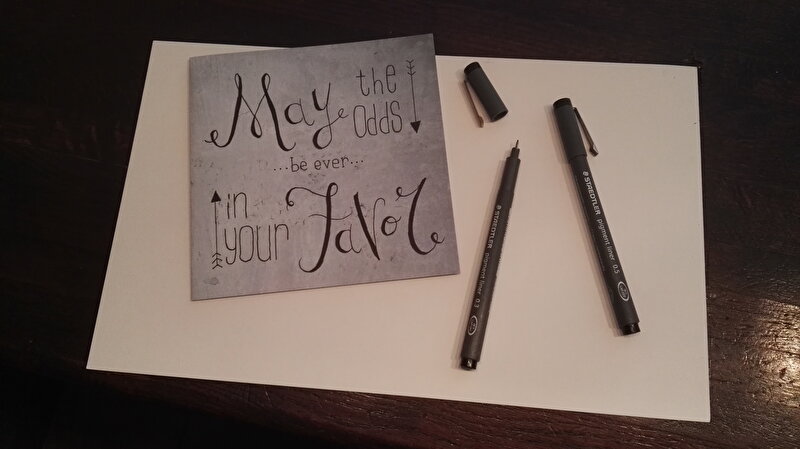 May the
Odds
...be ever...
in
your Favor
STAEDTLER pigment liner 0.3
STAEDTLER pigment liner 0.5